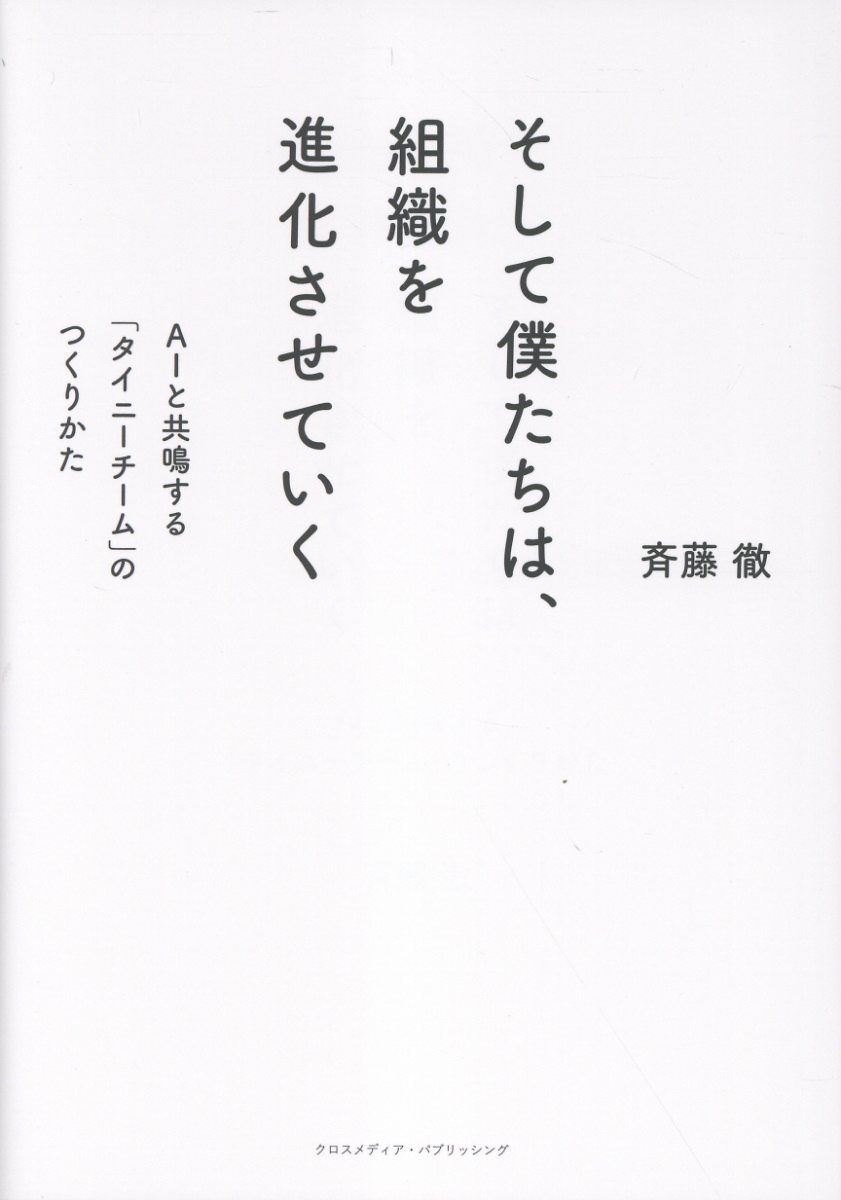 斉藤 徹
そして僕たちは、
組織を
進化させていく
AIと共鳴する
「タイニーチーム」の
つくりかた
クロスメディア・パブリッシング